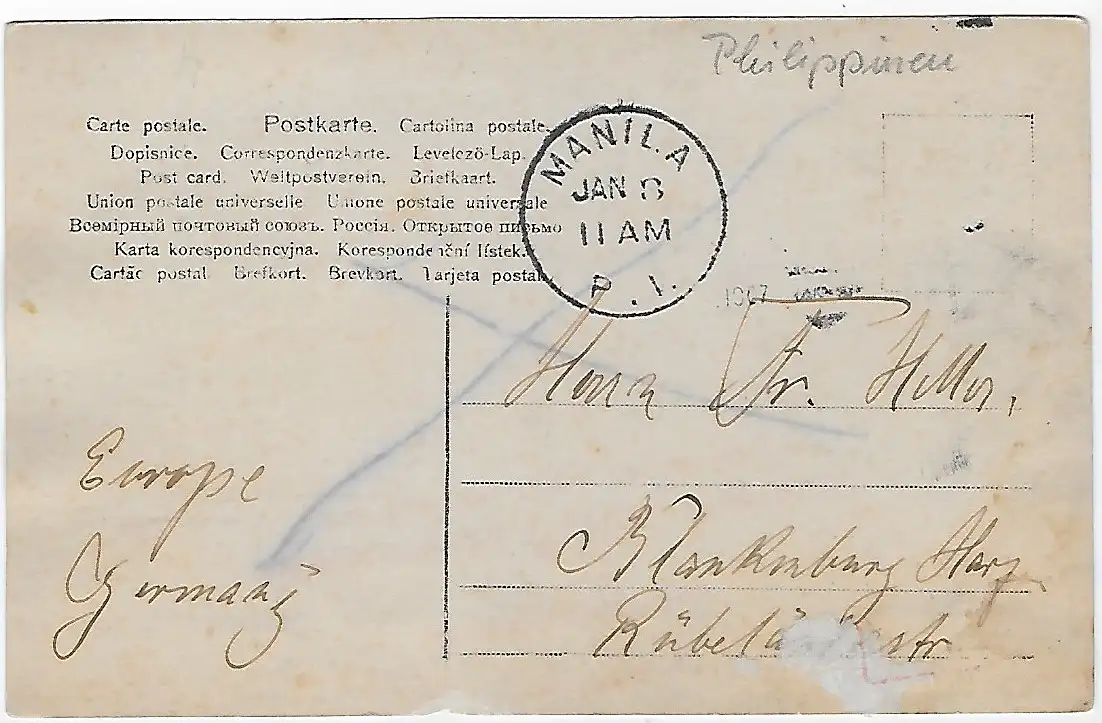 Philippinen
Carte postale. Postkarte. Cartolina postale.
Dopisnice. Correspondenzkarte. Levelező-Lap.
Post card. Weltpostverein. Briefkaart.
Union postale universelle Unione postale universale
Всемірный почтовый союзъ. Россія. Открытое письмо
Karta korespondencyjna. Korespondenční lístek.
Cartãc postal Brefkort. Brevkort. Tarjeta postal.
MANILA
JAN
11 AM
P. I.
1907
Herrn Fr. Heller,
Europe
Germany
Blankenburg Harz
Rübeländerstr